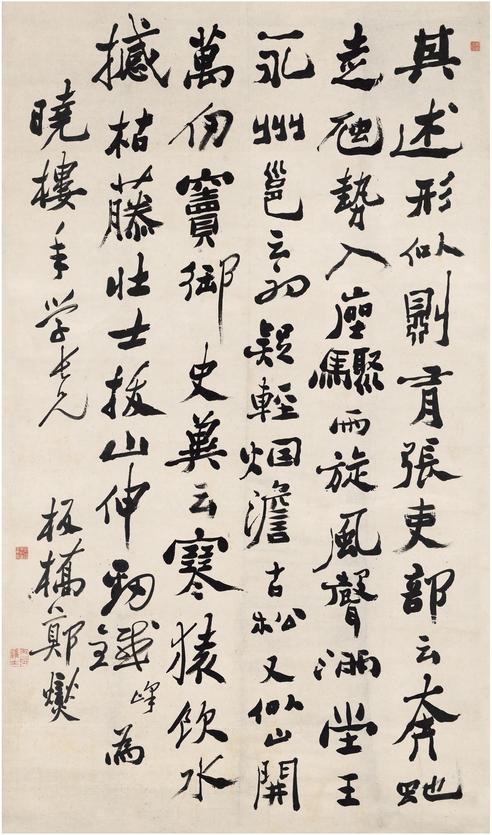 其述形似則有張吏部云奔虵
走虺勢入座驟雨旋風聲滿堂王
永州邕云初疑輕烟澹古松又似山開
萬仞竇御史冀云寒猿飲水
撼枯藤壯士拔山伸勁鐵 為
曉樓年学長兄
板橋鄭燮